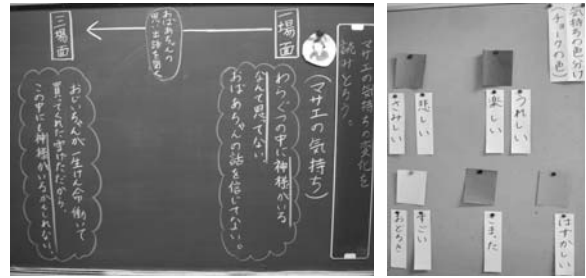 マサエの気持ちの変化を
読みとろう。
(マサエの気持ち)
一場面
わらぐつの中に神様がいる
なんて思ってない。
おばあちゃんの話を信じてない。
おばあちゃんの
思い出話を聞く
三場面
おじいちゃんが一生けん命働いて
買ってくれた雪げただから、
この中にも神様がいるかもしれない。
気持ちの色分け
(チョークの色)
うれしい
楽しい
悲しい
さみしい
はずかしい
こまった
すごい
おどろき